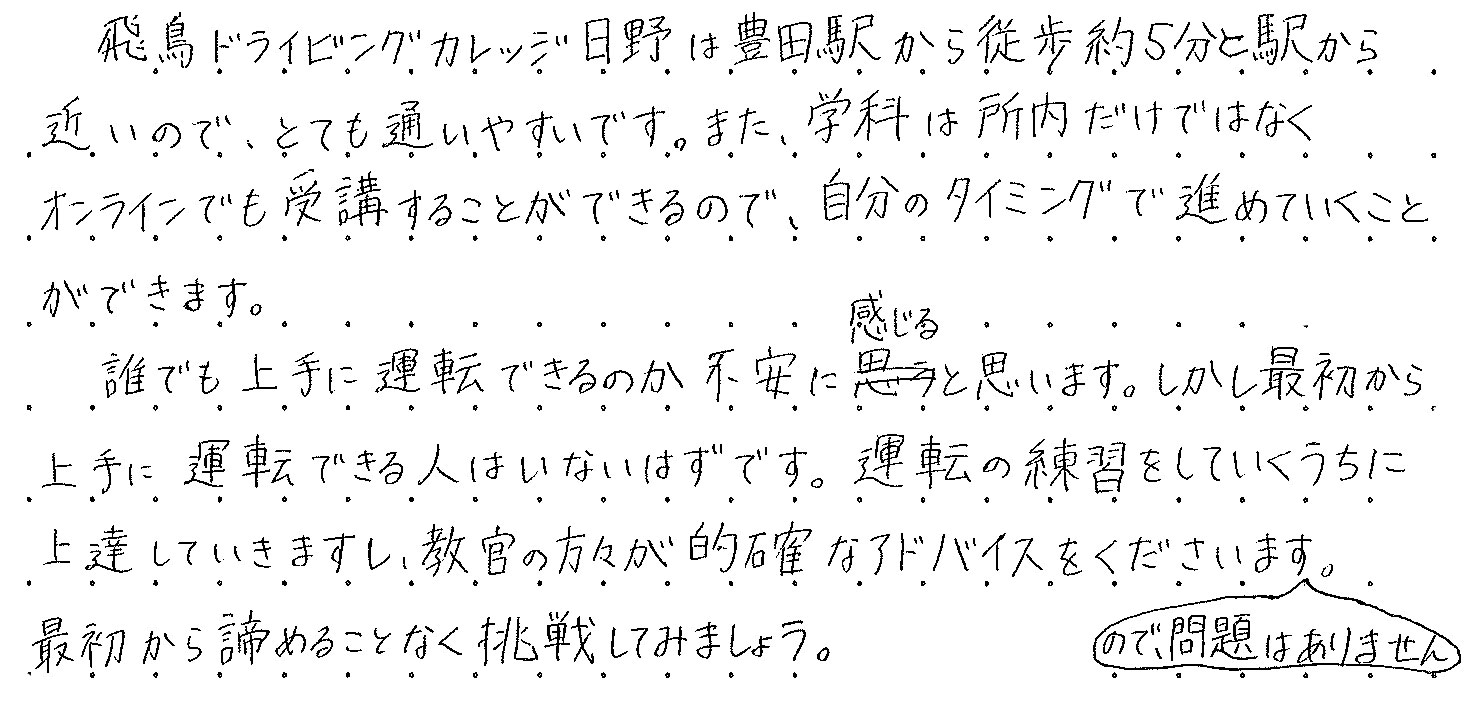 飛鳥ドライビングカレッジ日野は豊田駅から徒歩約5分と駅から
近いので、とても通いやすいです。また、学科は所内だけではなく
オンラインでも受講することができるので、自分のタイミングで進めていくこと
ができます。
感じる
誰でも上手に運転できるのか不安に思うと思います。しかし最初から
上手に運転できる人はいないはずです。運転の練習をしていくうちに
上達していきますし、教官の方々が的確なアドバイスをくださいます。
ので、問題はありません
最初から諦めることなく挑戦してみましょう。